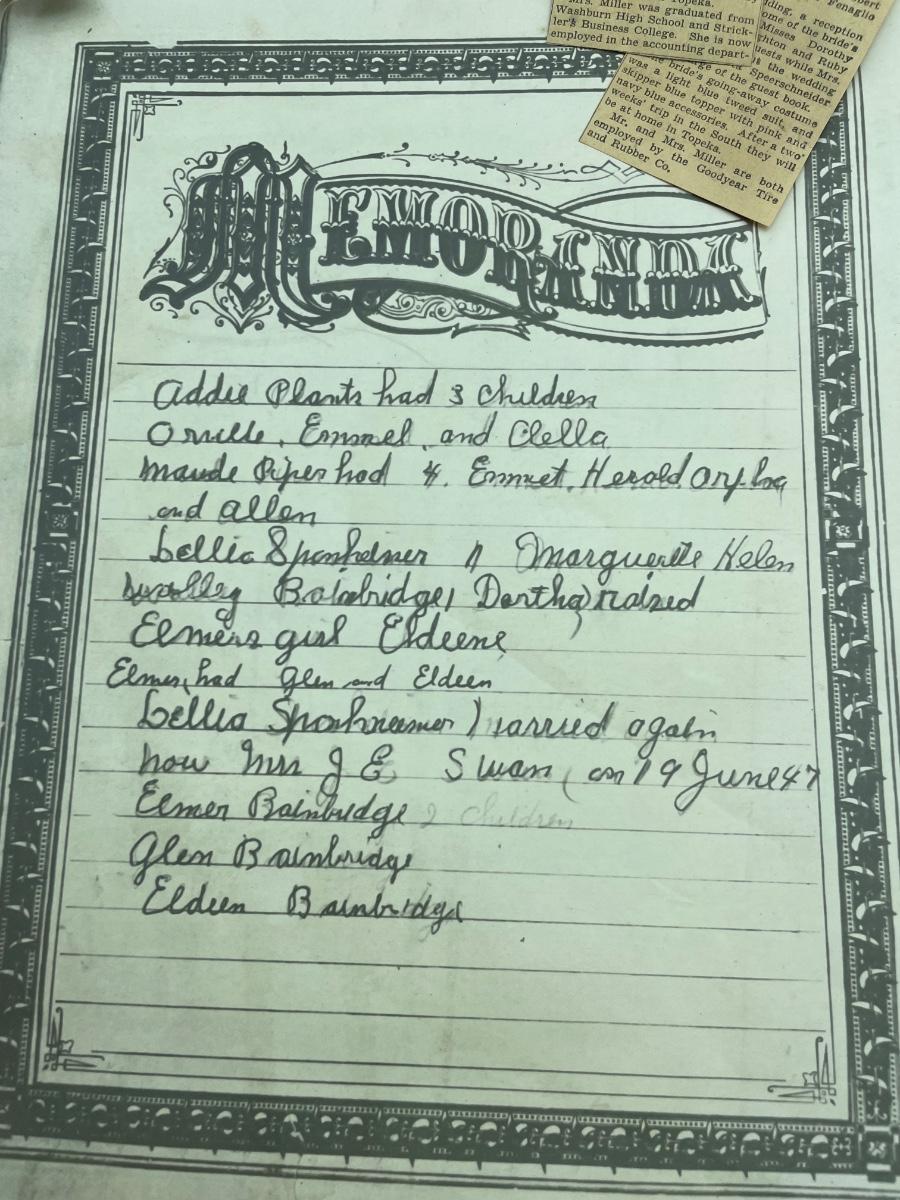 Topeka.
Mrs. Miller was graduated from
Washburn High School and Strick-
ler's Business College. She is now
employed in the accounting depart-
Fenaglio
a reception
ome of the bride's
Misses Dorothy
and Ruby
while Mrs.
the wedding
Speerschneider
of the guest book.
bride's going-away costume
was a light blue tweed suit, and
skipper blue topper with pink and
navy blue accessories. After a two
weeks' trip in the South they will
be at home in Topeka.
Mr. and Mrs. Miller are both
employed by the Goodyear Tire
and Rubber Co.
MEMORANDA
Addie Plants had 3 children
Orville, Emmel, and Clella
Maude Piper had 4. Emmet. Herold Orpha
and Allen
Lellia Sponheimer 11 Marguerite Helen
Bainbridge, Dortha) raized
Elmers girl Eldeene
Elmer, had Glen and Eldeen
Lellia Sponheimer) married again
now Mrs J E. Swan (on 19 June 47
Elmer Bainbridge 2 children
Glen Bainbridge
Eldeen Bainbridge